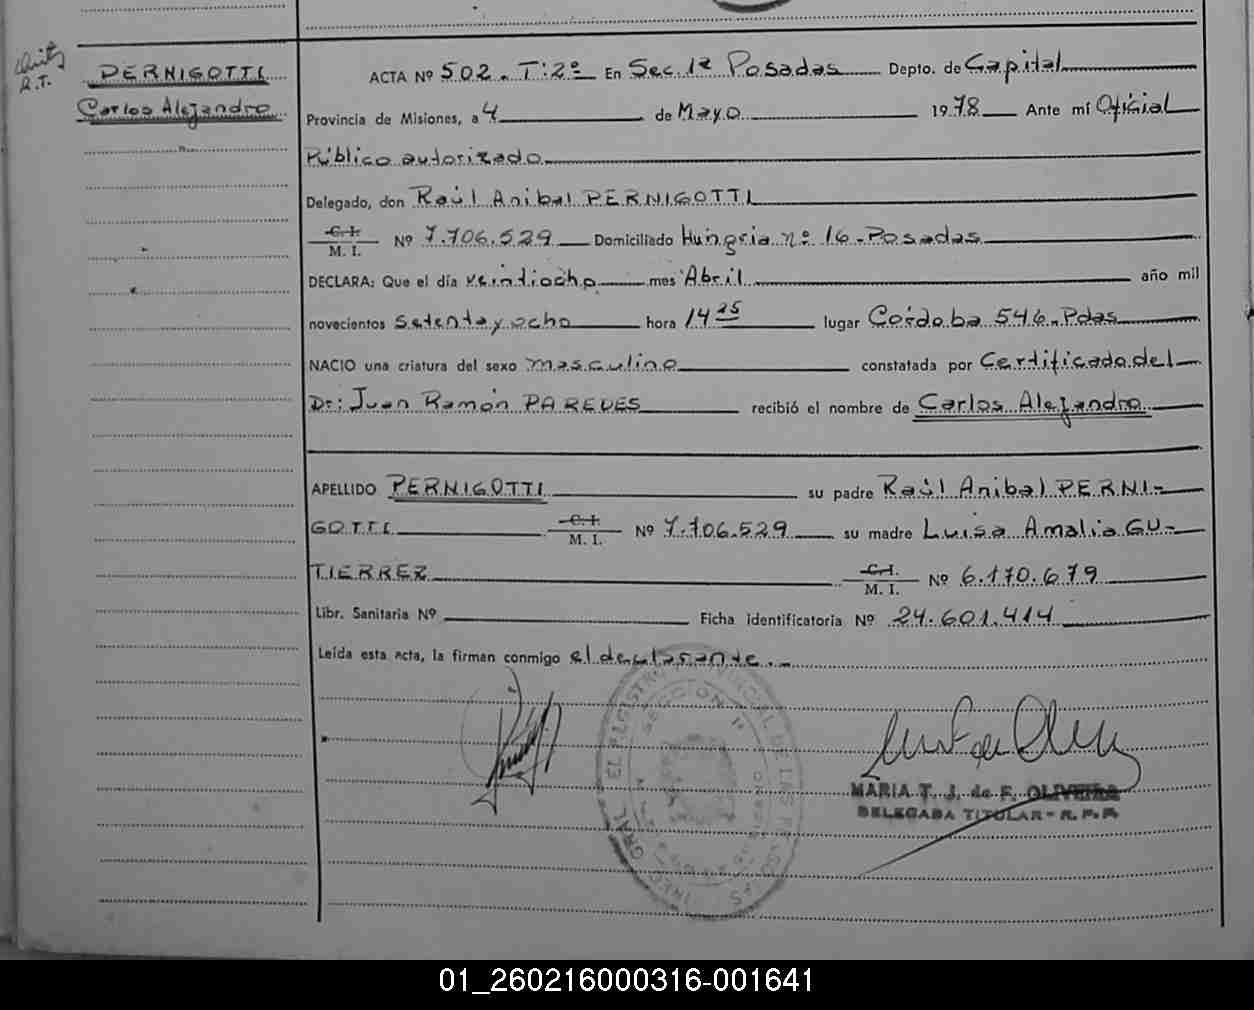 PERNIGOTTI
Carlos Alejandro
ACTA Nº 502. T:2º En Sec. 1ª Posadas Depto. de Capital
Provincia de Misiones, a 4 de Mayo 1978 Ante mí Oficial
Público autorizado
Delegado, don Raúl Anibal PERNIGOTTI
C. I.
M. I. Nº 7.706.529 Domiciliado Hungria nº 16-Posadas
DECLARA: Que el día veintiocho mes Abril año mil
novecientos setenta y ocho hora 14 25 lugar Córdoba 546. Pdas
NACIO una criatura del sexo masculino constatada por Certificado del
Dr: Juan Ramón PAREDES recibió el nombre de Carlos Alejandro
APELLIDO PERNIGOTTI su padre Raúl Anibal PERNI-
GOTTI C. I. M. I. Nº 7.706.529 su madre Luisa Amalia GU-
TIERREZ C. I. M. I. Nº 6.170.679
Libr. Sanitaria Nº Ficha identificatoria Nº 24.601.414
Leída esta acta, la firman conmigo el declarante.-
SECCION 1ª
MARIA T. J. de F. OLIVEIRA
DELEGADA TITULAR - R. P. P.
01_260216000316-001641